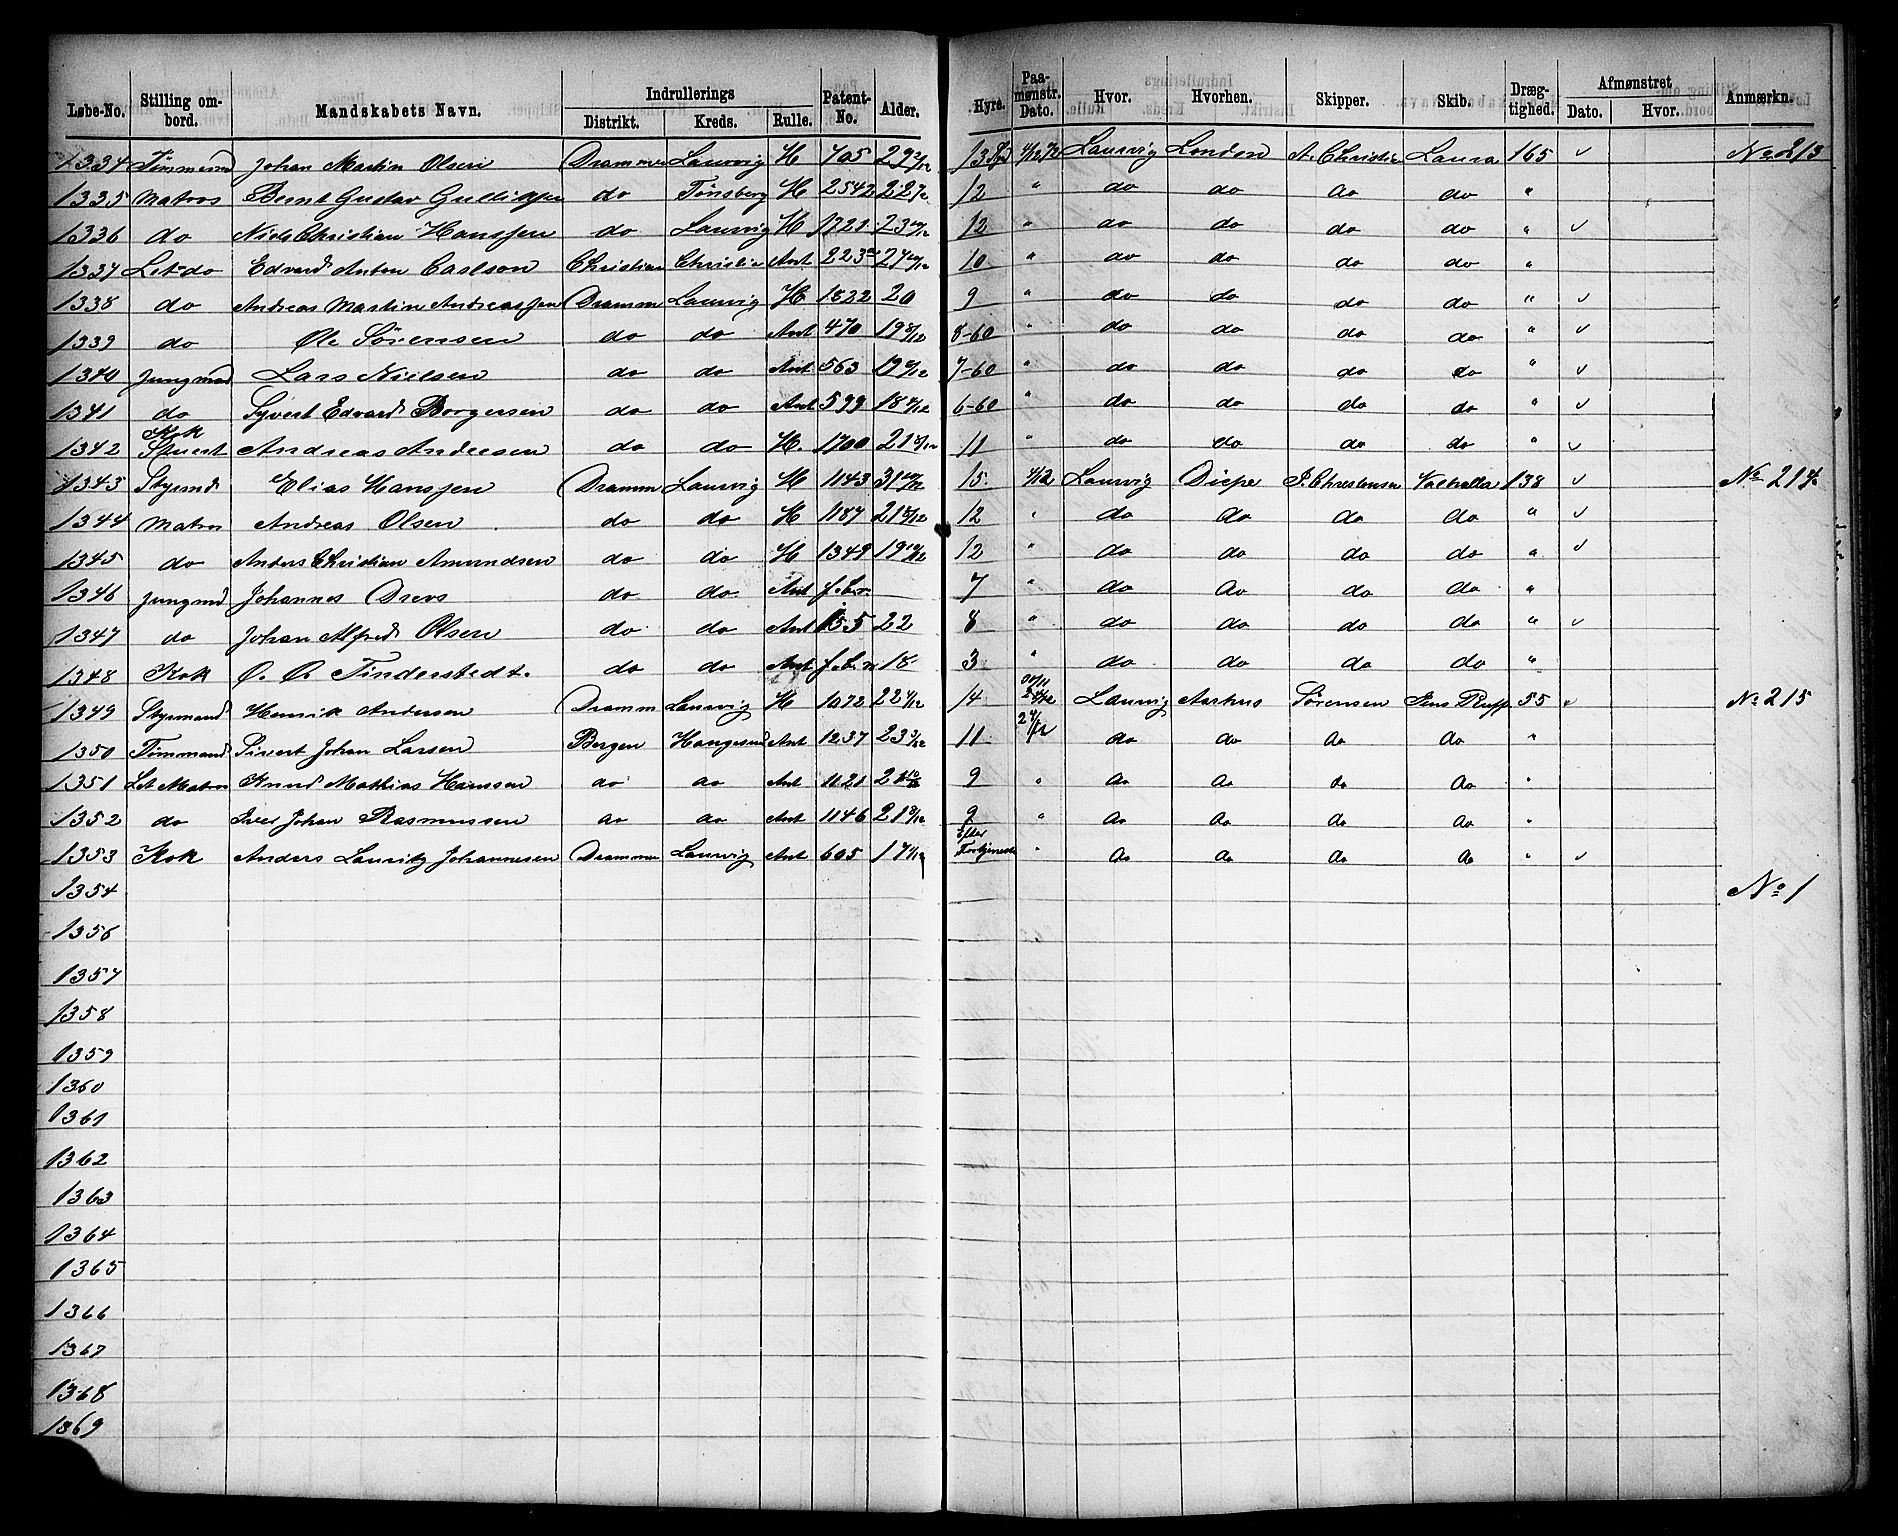 Løbe-No. Stilling ombord. Mandskabets Navn. Indrullerings Distrikt. Kreds. Rulle. Patent-No. Alder. Hyre. Paamønstr. Dato. Hvor. Hvorhen. Skipper. Skib. Drægtighed. Afmønstret Dato. Hvor. Anmærkn.
1334 Johan Martin Olsen Drammen Laurvig H 705 29 Laurvig London A. Christie Laura 165 No 213
1335 Matros Bernt Gustav do Tønsberg H 2542 22 12 " do do do do "
1336 do Niels Christian Hanssen do Laurvig H 1721 23 12 " do do do do "
1337 Let do Edvard Anton Carlson Christian Christia Ant 223 10 " do do do do "
1338 do Andreas Martin Andreassen Dramm Laurvig H 1822 20 9 " do do do do "
1339 do Ole Sørensen do do Ant 470 19 8-60 " do do do do "
1340 Jungmad Lars Nielsen do do Ant 563 7-60 " do do do do "
1341 do Syvert Edvard Borgersen do do Ant 599 18 6-60 " do do do do "
1342 Kok Stuert Andreas Andersen do do H. 1700 21 11 " do do do do "
1343 Styrmd Elias Hanssen Dramm Laurvig H 1143 31 15 4/12 Laurvig Diepe Valhalla 138 No 214
1344 Matros Andreas Olsen do do H 1187 21 12 " do do do do "
1345 do Anders Christian Amundsen do do H 1349 19 12 " do do do do "
1346 Jungmd Johannes Drevs do do Ant 7 " do do do do "
1347 do Johan Alfred Olsen do do Ant 155 22 8 " do do do do "
1348 Kok do do Ant 18 3 " do do do do "
1349 Styrmand Henrik Andersen Dramm Laurvig H 1072 22 14 Laurvig Aarhus Sørensen 55 No 215
1350 Tømmand Sivert Johan Larsen Bergen Haugesund Ant 1237 23 11 do do do do "
1351 Let Matros Knud Mathias Hanssen do do Ant 1121 9 " do do do do "
1352 do Iver Johan Rasmussen do do Ant 1146 21 9 " do do do do "
1353 Kok Anders Lauritz Johannesen Drammen Laurvig Ant 605 17 Efter Fortjeneste " do do do do "
1354 No 1
1356
1357
1358
1359
1360
1361
1362
1363
1364
1365
1366
1367
1368
1369